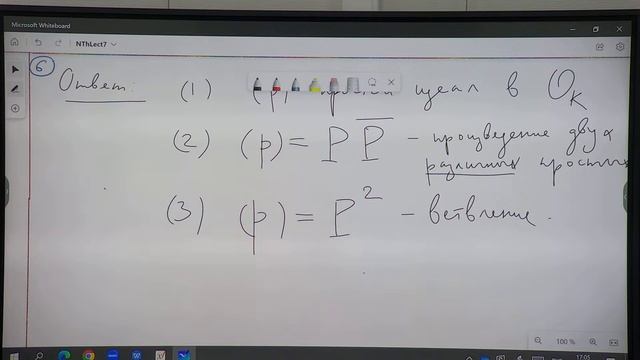 Microsoft Whiteboard
NThLect7
6 Ответ: (1) (p) идеал в O_K
(2) (p) = P P̅ – произведение двух
различных простых
(3) (p) = P² – ветвление.
100 %
17:05